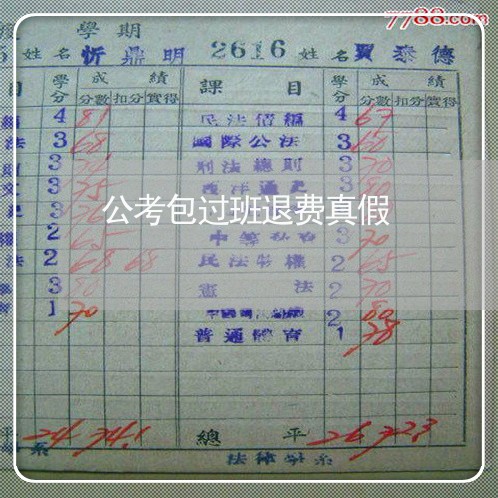 7788.com
度 學期
姓名 忻鼎明 2616 姓名 賈泰德
目 學分 成績 課目 學分 成績
分數 扣分 實得 分數 扣分 實得
4 81 民法債編 4 67
法 3 68 國際公法 3 60
3 刑法總則 3 70
3 75 西洋通史 3 80
公考包过班退费真假
2 65 3 70
法 2 68 68 民法物權 2 65
3 80 憲法 2 70
1 70 2 80
普通體育 1 78
平 24 74.1 總平 26 72.3
系 法律學系